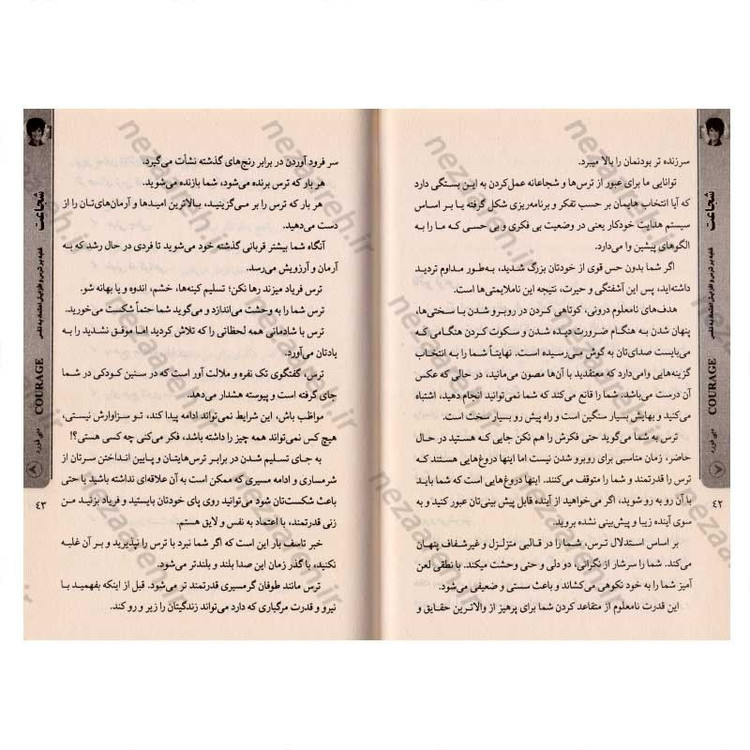 سرزنده تر بودنمان را بالا میبرد.
توانایی ما برای عبور از ترس‌ها و شجاعانه عمل‌کردن به این بستگی دارد
که آیا انتخاب هایمان بر حسب تفکر و برنامه‌ریزی شکل گرفته یا بر اساس
سیستم هدایت خودکار یعنی در وضعیت بی فکری و بی حسی که ما را به
الگوهای پیشین وا می‌دارد.
اگر شما بدون حس قوی از خودتان بزرگ شدید، به‌طور مداوم تردید
داشته‌اید، پس این آشفتگی و حیرت، نتیجه این ناملایمتی‌ها است.
هدف‌های نامعلوم درونی، کوتاهی کردن در روبرو شدن با سختی‌ها،
پنهان شدن به هنگام ضرورت دیده شدن و سکوت کردن هنگامی که
می‌بایست صدای‌تان به گوش می‌رسیده است. نهایتاً شما را به انتخاب
گزینه‌هایی وامی‌دارد که معتقدید با آن‌ها مصون می‌مانید، در حالی که عکس
آن درست می‌باشد. شما را قانع می‌کند که شما نمی‌توانید انجام دهید، اشتباه
می‌کنید و بهایش بسیار سنگین است و راه پیش رو بسیار سخت است.
ترس به شما می‌گوید حتی فکرش را هم نکن جایی که هستید در حال
حاضر، زمان مناسبی برای روبرو شدن نیست اما اینها دروغ‌هایی هستند که
ترس را قدرتمند و شما را متوقف می‌کنند. اینها دروغ‌هایی است که شما باید
با آن رو به رو شوید، اگر می‌خواهید از آینده قابل پیش بینی‌تان عبور کنید و به
سوی آینده زیبا و پیش‌بینی نشده بروید.
بر اساس استدلال ترس، شما را در قالبی متزلزل و غیرشفاف پنهان
می‌کند. شما را سرشار از نگرانی، دو دلی و حتی وحشت میکند. با نطقی لعن
آمیز شما را به خود نکوهی می‌کشاند و باعث سستی و ضعیفی می‌شود.
این قدرت نامعلوم از متقاعد کردن شما برای پرهیز از والاترین حقایق و
شجاعت
COURAGE
دبی فورد
٤٢
سر فرود آوردن در برابر رنج‌های گذشته نشأت می‌گیرد.
هر بار که ترس برنده می‌شود، شما بازنده می‌شوید.
هر بار که ترس را بر می‌گزینید، بالاترین امیدها و آرمان‌های‌تان را از
دست می‌دهید.
آنگاه شما بیشتر قربانی گذشته خود می‌شوید تا فردی در حال رشد که به
آرمان و آرزویش می‌رسد.
ترس فریاد میزند رها نکن؛ تسلیم کینه‌ها، خشم، اندوه و یا بهانه شو.
ترس شما را به وحشت می‌اندازد و می‌گوید شما حتماً شکست می‌خورید.
ترس با شادمانی همه لحظاتی را که تلاش کردید اما موفق نشدید را به
یادتان می‌آورد.
ترس، گفتگوی تک نفره و ملالت آور است که در سنین کودکی در شما
جای گرفته است و پیوسته هشدار می‌دهد.
مواظب باش، این شرایط نمی‌تواند ادامه پیدا کند، تو سزاوارش نیستی،
هیچ کس نمی‌تواند همه چیز را داشته باشد، فکر می‌کنی چه کسی هستی؟!
به جای تسلیم شدن در برابر ترس‌هایتان و پایین انداختن سرتان از
شرمساری و ادامه مسیری که ممکن است به آن علاقه‌ای نداشته باشید یا حتی
باعث شکست‌تان شود می‌توانید روی پای خودتان بایستید و فریاد بزنید من
زنی قدرتمند، با اعتماد به نفس و لایق هستم.
خبر تاسف بار این است که اگر شما نبرد با ترس را نپذیرید و بر آن غلبه
نکنید، با گذر زمان این صدا بلند و بلندتر می‌شود.
ترس مانند طوفان گرمسیری قدرتمند تر می‌شود. قبل از اینکه بفهمید با
نیرو و قدرت مرگباری که دارد می‌تواند زندگیتان را زیر و رو کند.
شجاعت
غلبه بر ترس و افزایش اعتماد به نفس
COURAGE
دبی فورد
٤٣
nezaareh.ir